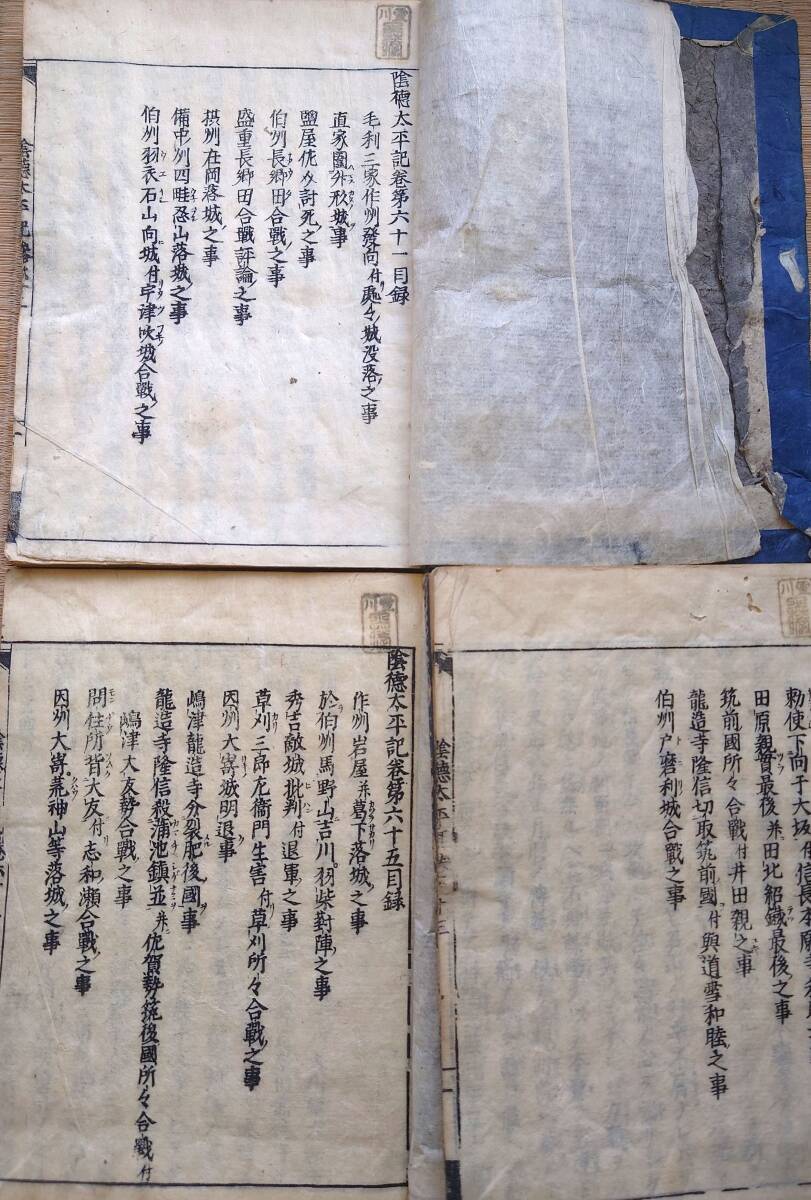 陰徳太平記巻第六十一目録
毛利三家作州發向付處々城没落之事
直家圍外形城事
鹽屋佐介討死之事
伯州長郷田合戰之事
盛重長郷田合戰評論之事
摂州在岡落城之事
備中州四畦忍山落城之事
伯州羽衣石山向城付宇津吹城合戰之事
陰徳太平記巻第六十五目録
作州岩屋并葛下落城之事
於伯州馬野山吉川羽柴對陣之事
秀吉敵城批判付退軍之事
草刈三郎左衞門生害付草刈所々合戰之事
因州大嵜城明退事
嶋津龍造寺分裂肥後國事
龍造寺隆信殺蒲池鎮並并佐賀勢筑後國所々合戰付
嶋津大友勢合戰之事
問註所背大友付志和瀬合戰之事
因州大嵜荒神山等落城之事
勅使下向于大坂信長
田原親貫最後并田北紹鐵最後之事
筑前國所々合戰付井田親之事
龍造寺隆信切取筑前國付與道雪和睦之事
伯州戸磨利城合戰之事